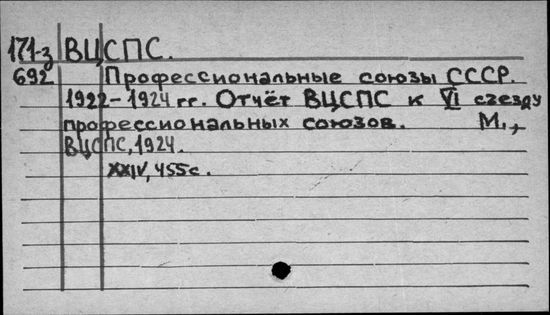 171-з ВЦСПС.
692 Профессиональные союзы СССР.
1922-1924 гг. Отчёт ВЦСПС к VI съезду
профессиональных союзов. М.,
ВЦСПС, 1924.
XXIV, 455с.